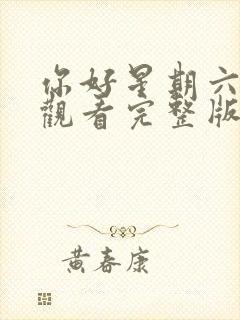 你好星期六
觀看完整版
黃春康